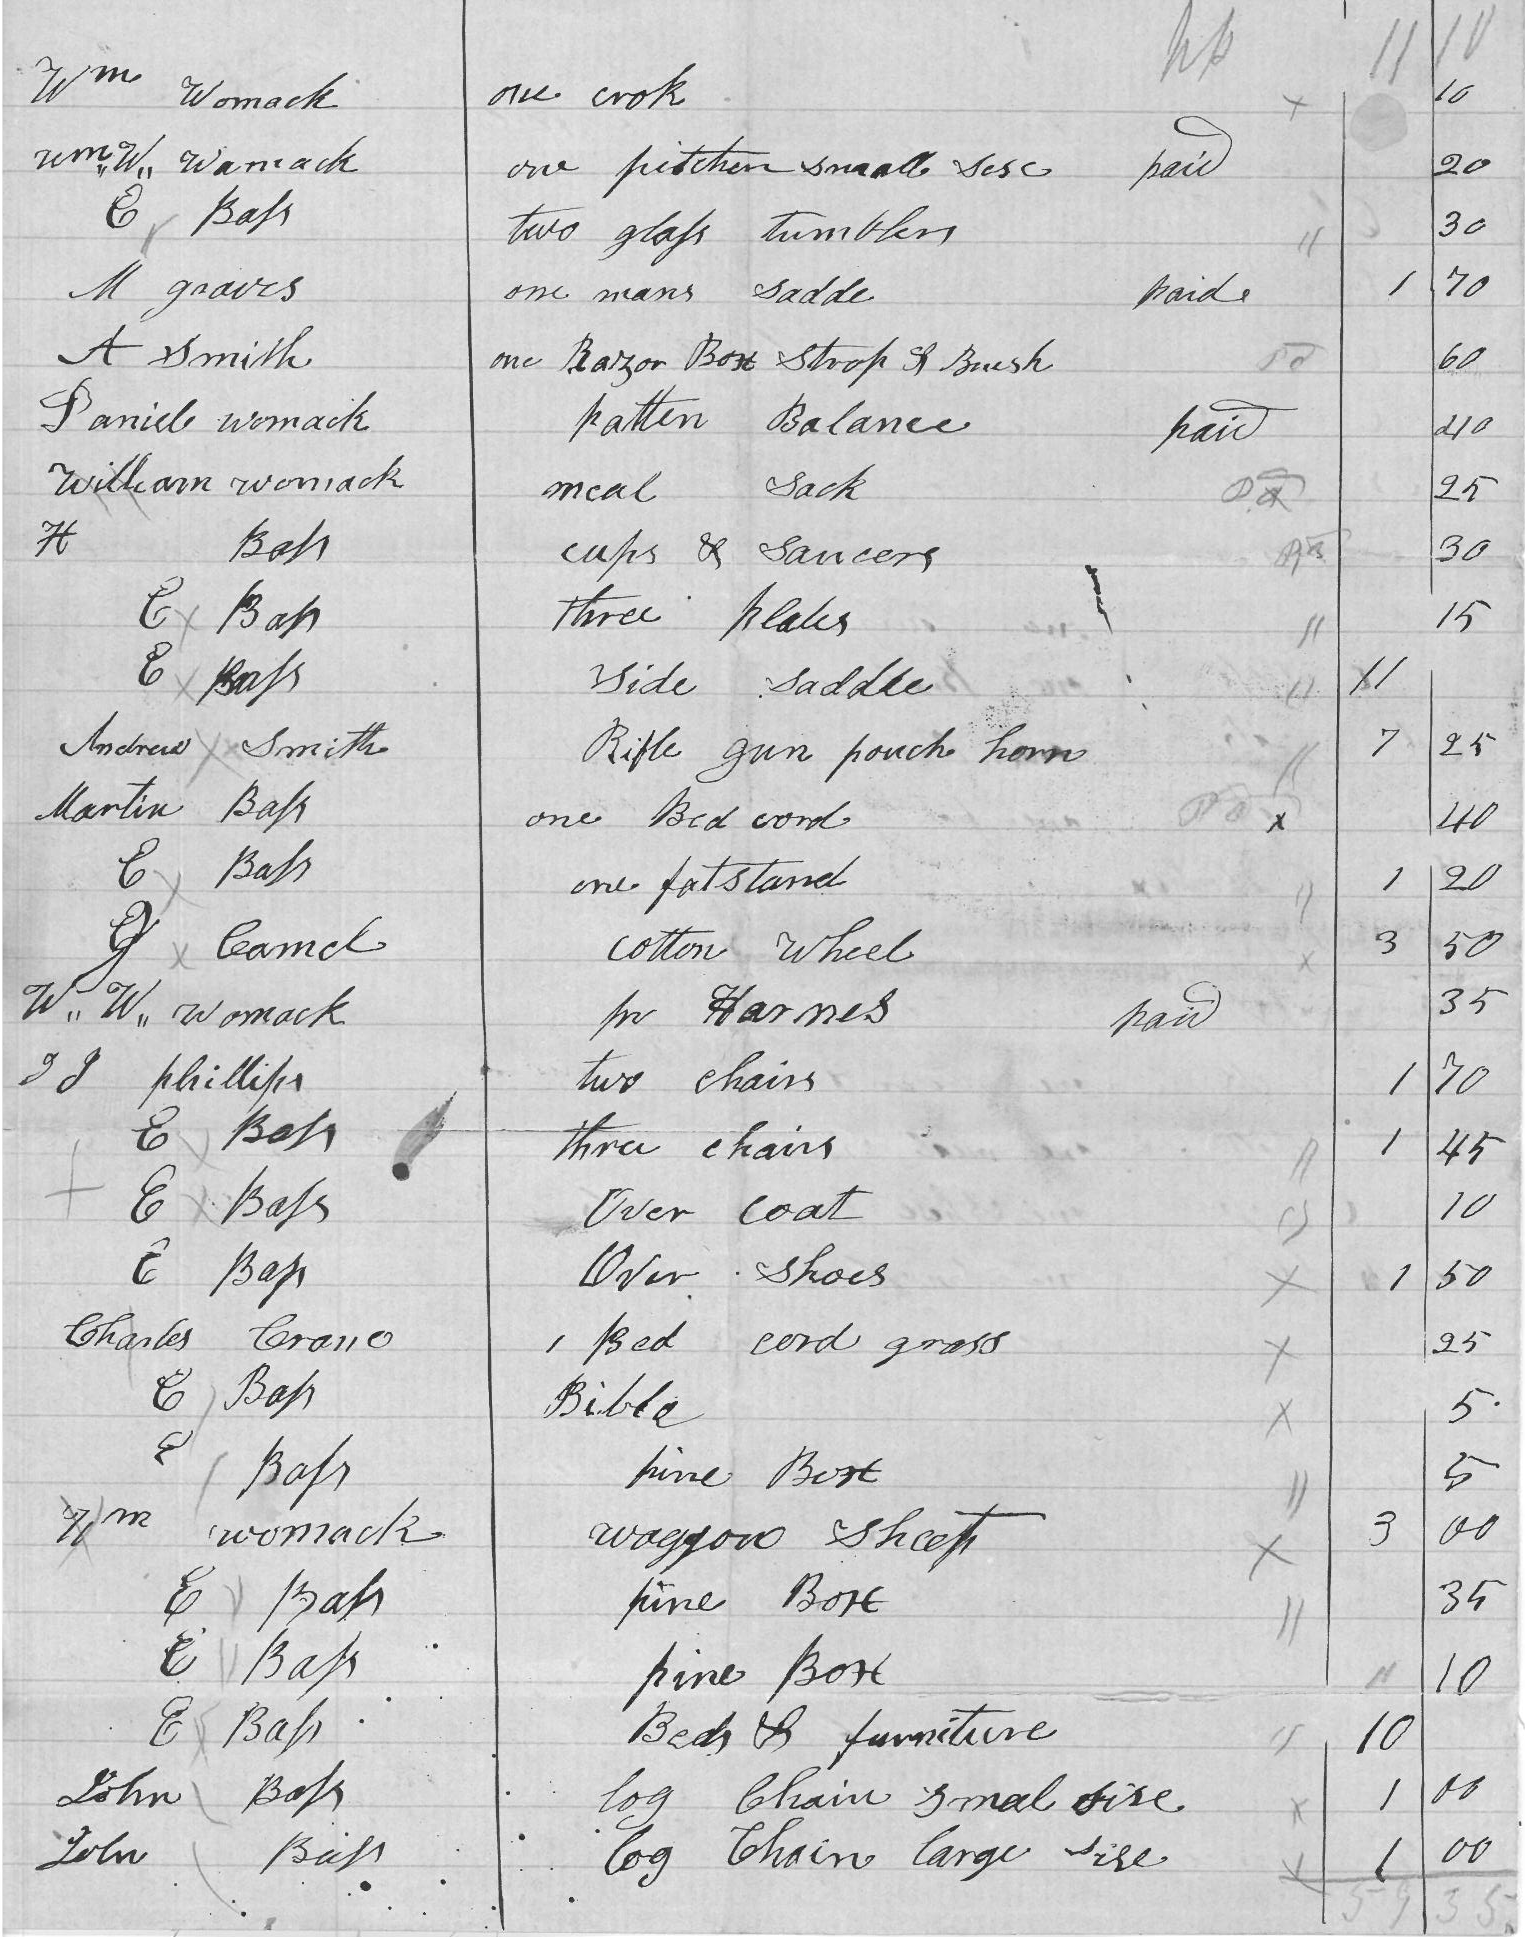 pd 11 10
Wm Womack one crok x 10
wm"W" Wamack one pitcher small sise paid 20
E Bass two glass tumblers " 30
M graves one mans sadde paid 1 70
A Smith one Razor Box Strop & Brush Pd 60
Daniel womack patten Balance paid 40
William womack meal sack Pd 25
H Bass cups & saucers Pd 30
E x Bass three plates " 15
E x Bass Side saddle " 11
Andrew x Smith Rifle gun pouch horn " 7 25
Martin Bass one Bed cord Pd x 40
E x Bass one fatstand " 1 20
x Camel cotton Wheel x 3 50
W" W" womack pr Harnes paid 35
J J phillips two chairs 1 70
E Bass three chairs " 1 45
E x Bass Over coat " 10
E Bass Over shoes x 1 50
Charles Crane 1 Bed cord grass x 25
E Bass Bible x 5
E Bass pine Box " 5
Wm womack waggon Sheet x 3 00
E Bass pine Box " 35
E " Bass pine Box " 10
E Bass Beds & furniture " 10
John Bass log Chain smal sise x 1 00
John Bass log Chain large sise x 1 00
59 35